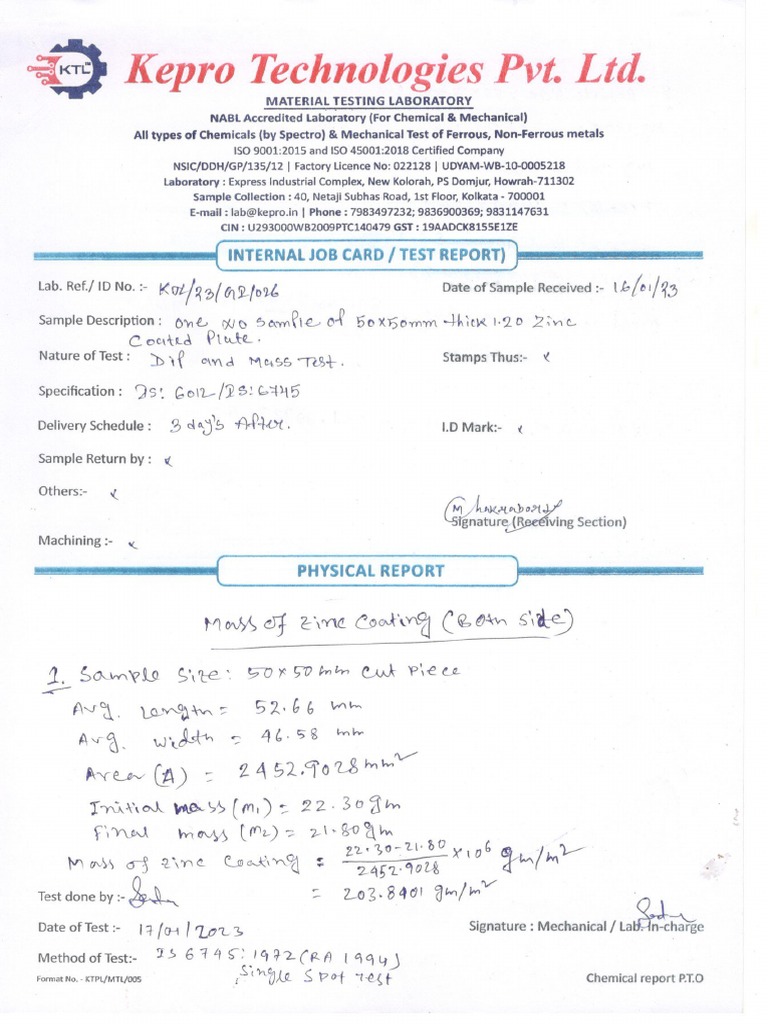 KTL™
Kepro Technologies Pvt. Ltd.
MATERIAL TESTING LABORATORY
NABL Accredited Laboratory (For Chemical & Mechanical)
All types of Chemicals (by Spectro) & Mechanical Test of Ferrous, Non-Ferrous metals
ISO 9001:2015 and ISO 45001:2018 Certified Company
NSIC/DDH/GP/135/12 | Factory Licence No: 022128 | UDYAM-WB-10-0005218
Laboratory : Express Industrial Complex, New Kolorah, PS Domjur, Howrah-711302
Sample Collection : 40, Netaji Subhas Road, 1st Floor, Kolkata - 700001
E-mail : lab@kepro.in | Phone : 7983497232; 9836900369; 9831147631
CIN : U293000WB2009PTC140479 GST : 19AADCK8155E1ZE
INTERNAL JOB CARD / TEST REPORT)
Lab. Ref./ ID No. :- Date of Sample Received :- 16/01/23
Sample Description : one no sample of 50x50mm thick 1.20 Zinc
Coated Plate.
Nature of Test : Dip and Mass Test. Stamps Thus:- x
Specification : IS: 6012/IS:6745
Delivery Schedule : 3 day's After. I.D Mark:- x
Sample Return by : x
Others:- x
M Chakraborty
Signature (Receiving Section)
Machining :- x
PHYSICAL REPORT
Mass of Zinc Coating (Both Side)
1. Sample Size: 50x50mm cut piece
Avg. Length = 52.66 mm
Avg. width = 46.58 mm
Area (A) = 2452.9028 mm²
Initial mass (m₁) = 22.30gm
Final mass (m₂) = 21.80gm
Mass of Zinc Coating = 22.30-21.80/2452.9028 x10⁶ gm/m²
= 203.8401 gm/m²
Test done by :-
Date of Test :- 17/01/2023 Signature : Mechanical / Lab. In-charge
Method of Test:- IS 6745:1972 (RA 1994)
Single Spot Test
Format No. - KTPL/MTL/005 Chemical report P.T.O